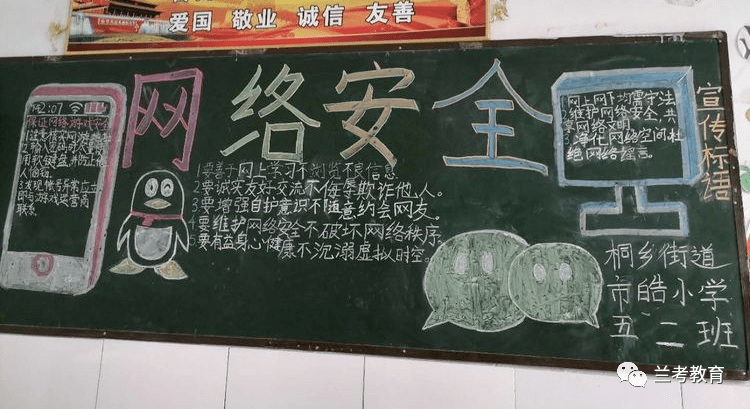 爱国 敬业 诚信 友善
网络安全
12:07
保证网络游戏安全
1.注意
2.输入密码时尽量使
用软键盘并防止他
人偷窥。
3.发现帐号异常应立
即与游戏运营商
联系。
1 要善于网上学习不浏览不良信息。
2 要诚实友好交流不侮辱欺诈他人。
3 要增强自护意识不随意约会网友。
4 要维护网络安全不破坏网络秩序。
5 要有益身心健康不沉溺虚拟时空。
网上网下均需守法
维护网络安全,共
享网络文明。
净化网络空间杜
绝网络谣言。
宣传标语
桐乡街道
市皓小学
五二班
兰考教育